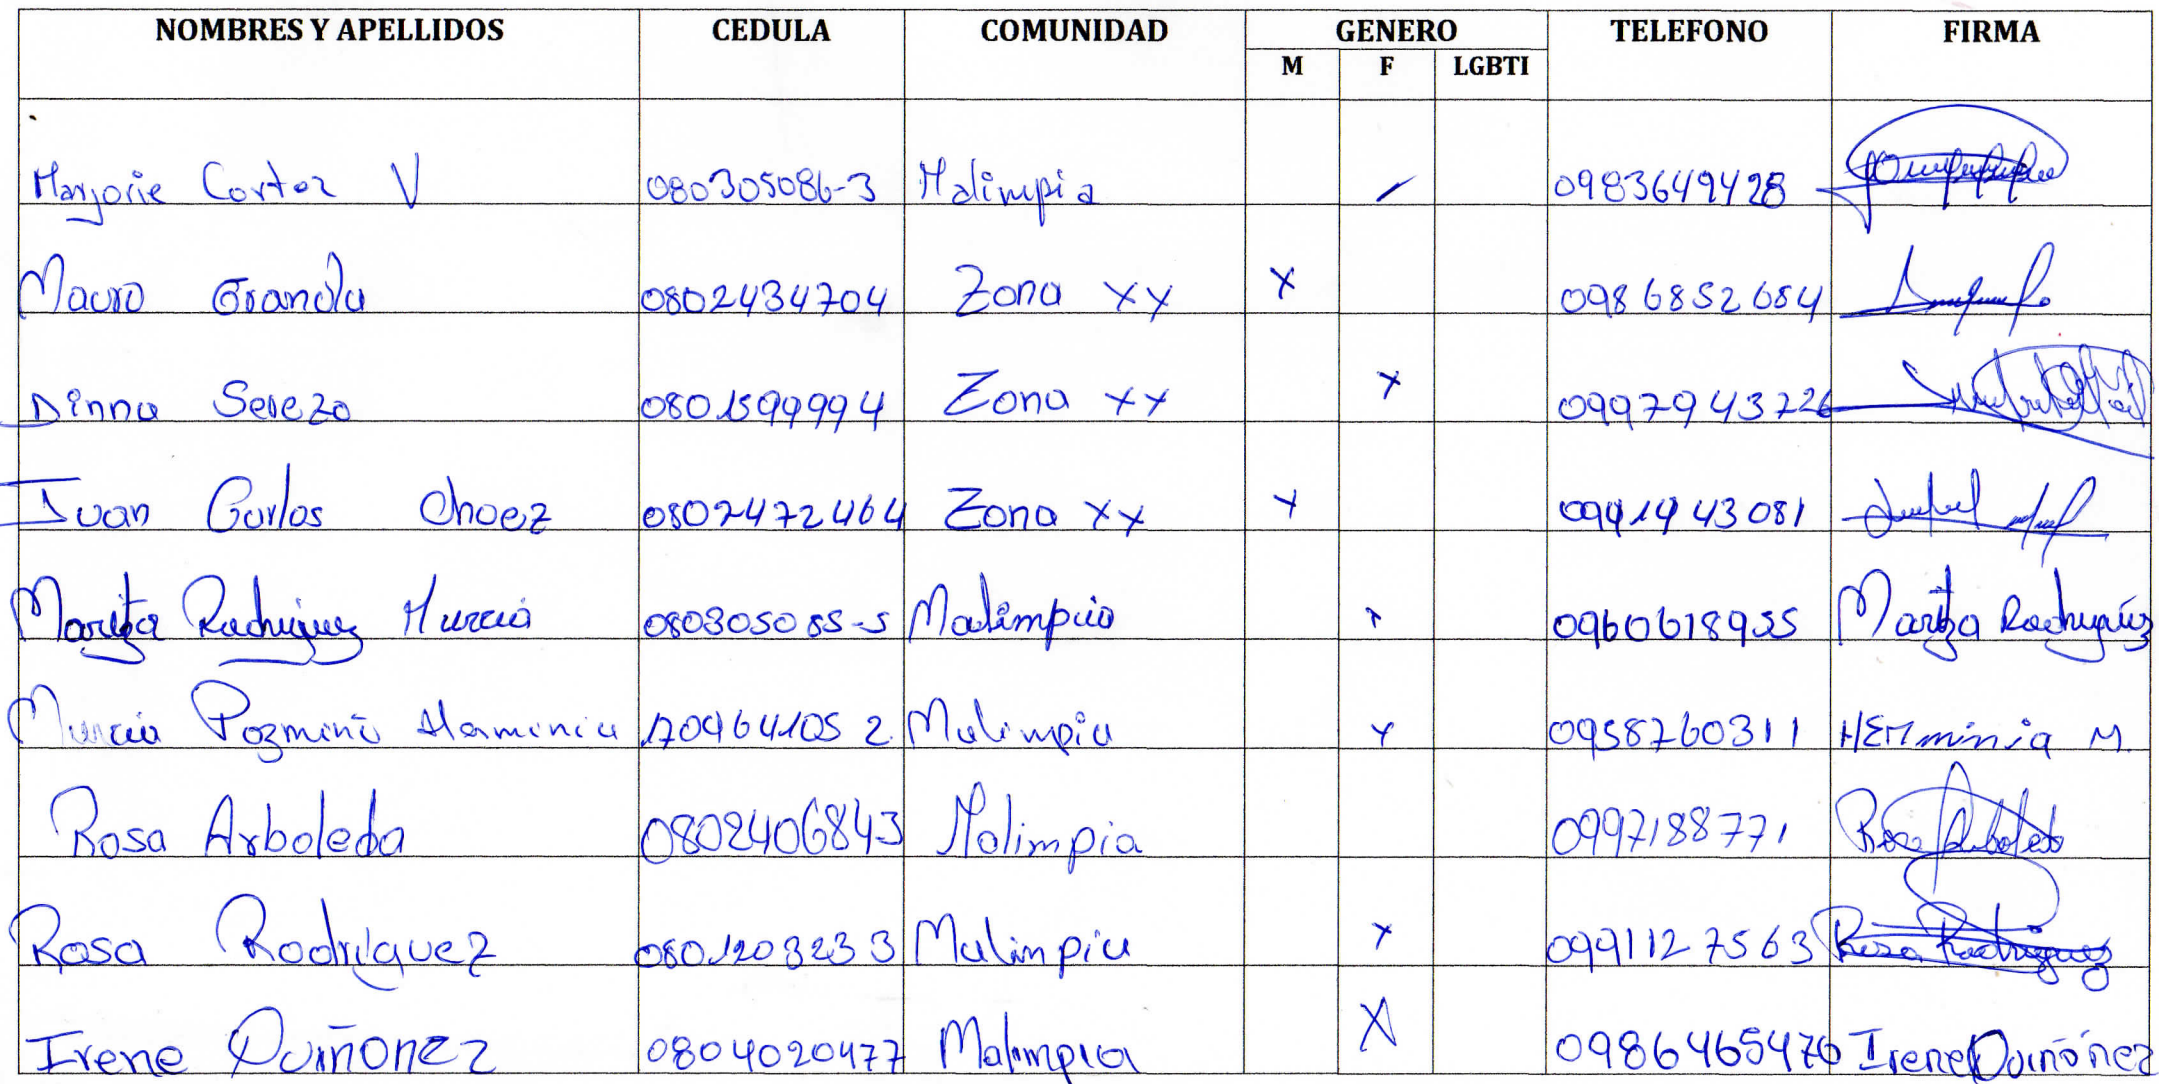 NOMBRES Y APELLIDOS CEDULA COMUNIDAD GENERO TELEFONO FIRMA
M F LGBTI
Marjorie Cortez V 080305086-3 Malimpia 0983649428
Mauro Granda 0802434704 Zona xx X 0986852684
Dinna Serezo 0801599994 Zona xx x 0997943726
Juan Carlos Choez 0802472464 Zona xx x 0991443081
Maritza Rodriguez Murcia 080305085-5 Malimpia 0960618955 Maritza Rodriguez
Murcia Pozmiño Herminia 170464105 2 Malimpia x 0958760311 HERminia M.
Rosa Arboleda 0802406843 Malimpia 0997188771 Rosa Arboleda
Rosa Rodriguez 0801203233 Malimpia x 0991127563 Rosa Rodriguez
Irene Quiñonez 0804020477 Malimpia X 0986465476 Irene Quiñónez